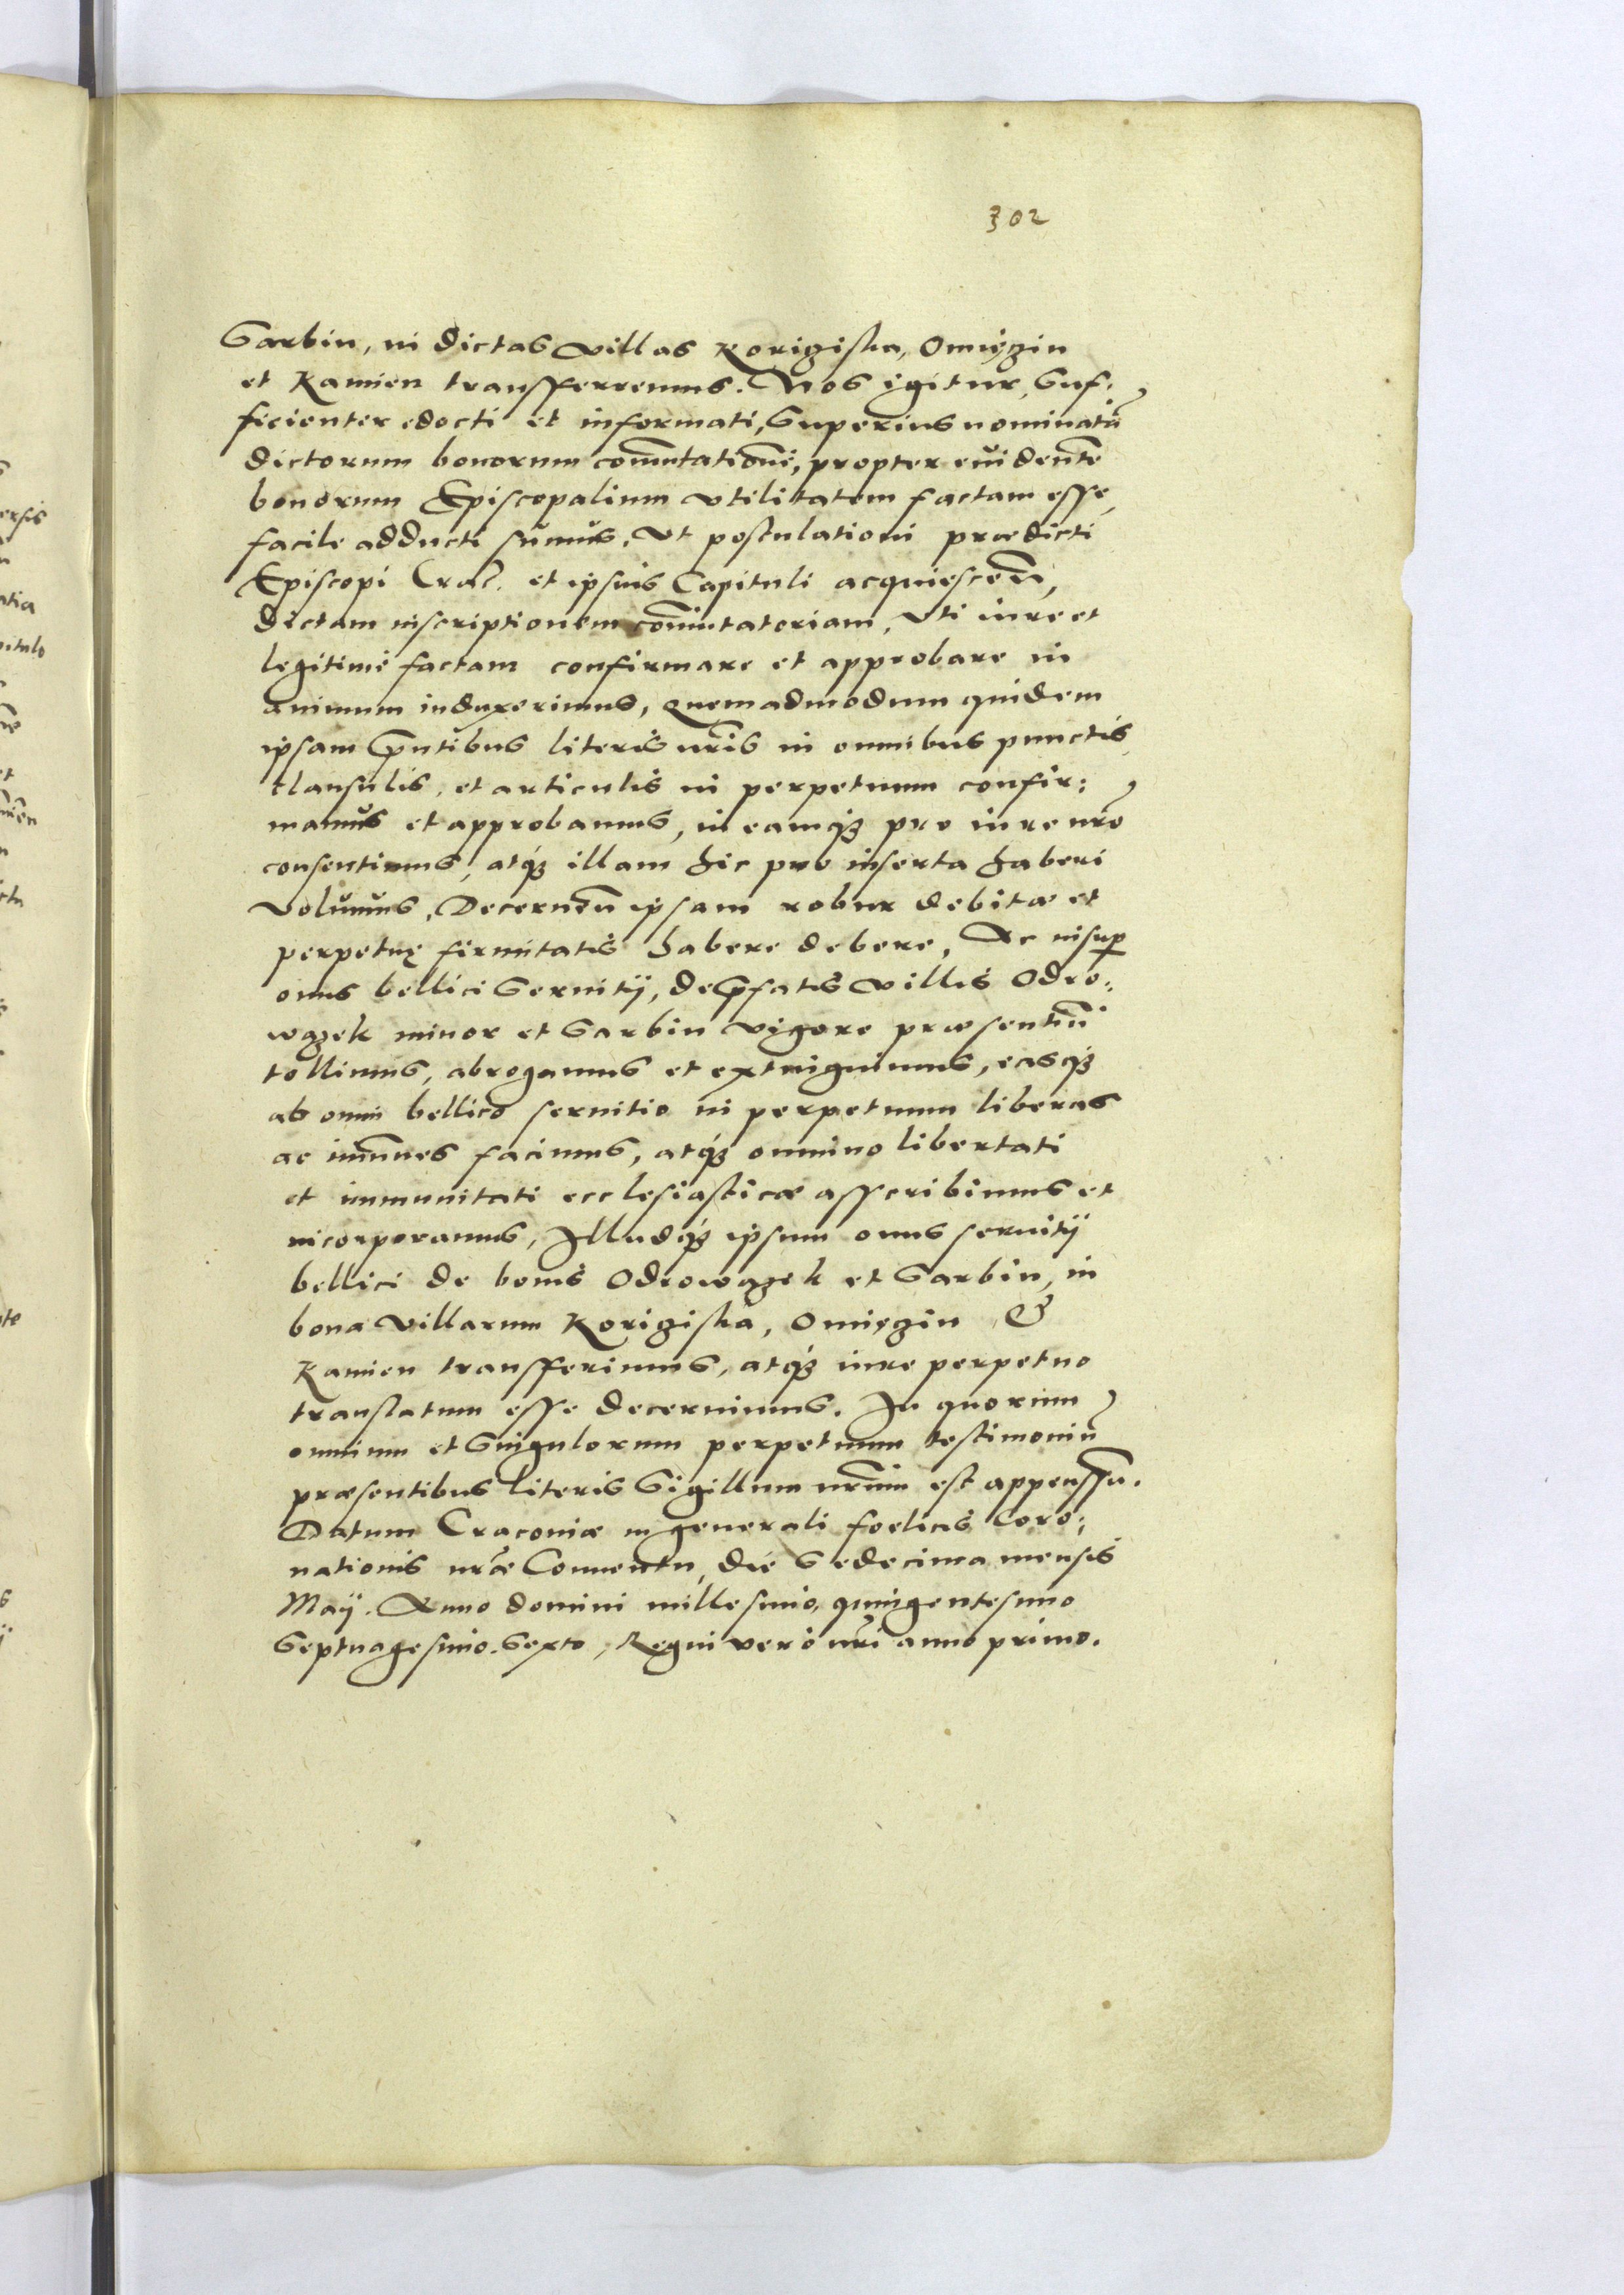 302
Garbin, in dictas villas Korigistha, Omięgin
et Kamien transfferremus. Nos igitur, suf:
ficienter edocti et informati, superius nominatā
dictorum bonorum com̄utationē, propter euidentē
bonorum Episcopalium vtilitatem factam esse,
facile adducti sumus, vt postulationi prædicti
Episcopi Crac̄. et ipsius Capituli acquiescen̄,
dictam inscriptionem com̄utatoriam, vti iure et
legitimè factam confirmare et approbare in
animum induxerimus, quemadmodum quidem
ipsam p̄ntibus literis nr̄is in omnibus punctis,
clausulis, et articulis in perpetuum confir:
mamus et approbamus, in eamq́ȝ pro iure nr̄o
consentimus, atq́ȝ illam hic pro inserta haberi
volumus, Decernen̄ ipsam robur debitæ et
perpetuę firmitatis habere debere, Ac insuꝑ
onus bellici seruitij, de p̄fatis villis Odro:
wązek minor et Garbin vigore præsentiū
tollimus, abrogamus et extinguimus, easq́ȝ
ab omni bellico seruitio in perpetuum liberas
ac im̄unes facimus, atq́ȝ omnino libertati
et immunitati ecclesiasticæ asscribimus et
incorporamus, Illudq́ȝ ipsum onus seruitij
bellici de bonis Odrowązek et Garbin, in
bona villarum Korigistha, Omięgin &
Kamien transfferimus, atq́ȝ iure perpetuo
translatum esse decernimus. In quorum
omnium et singulorum perpetuum testimoniū
præsentibus literis sigillum nr̄um est appenssū.
Datum Cracoviæ in generali foelicis Coro:
nationis nr̄æ Conuentu, die sedecima mensis
Maij. Anno domini millesimo, quingentesimo
septuagesimo sexto, Regni verò nr̄i anno primo.